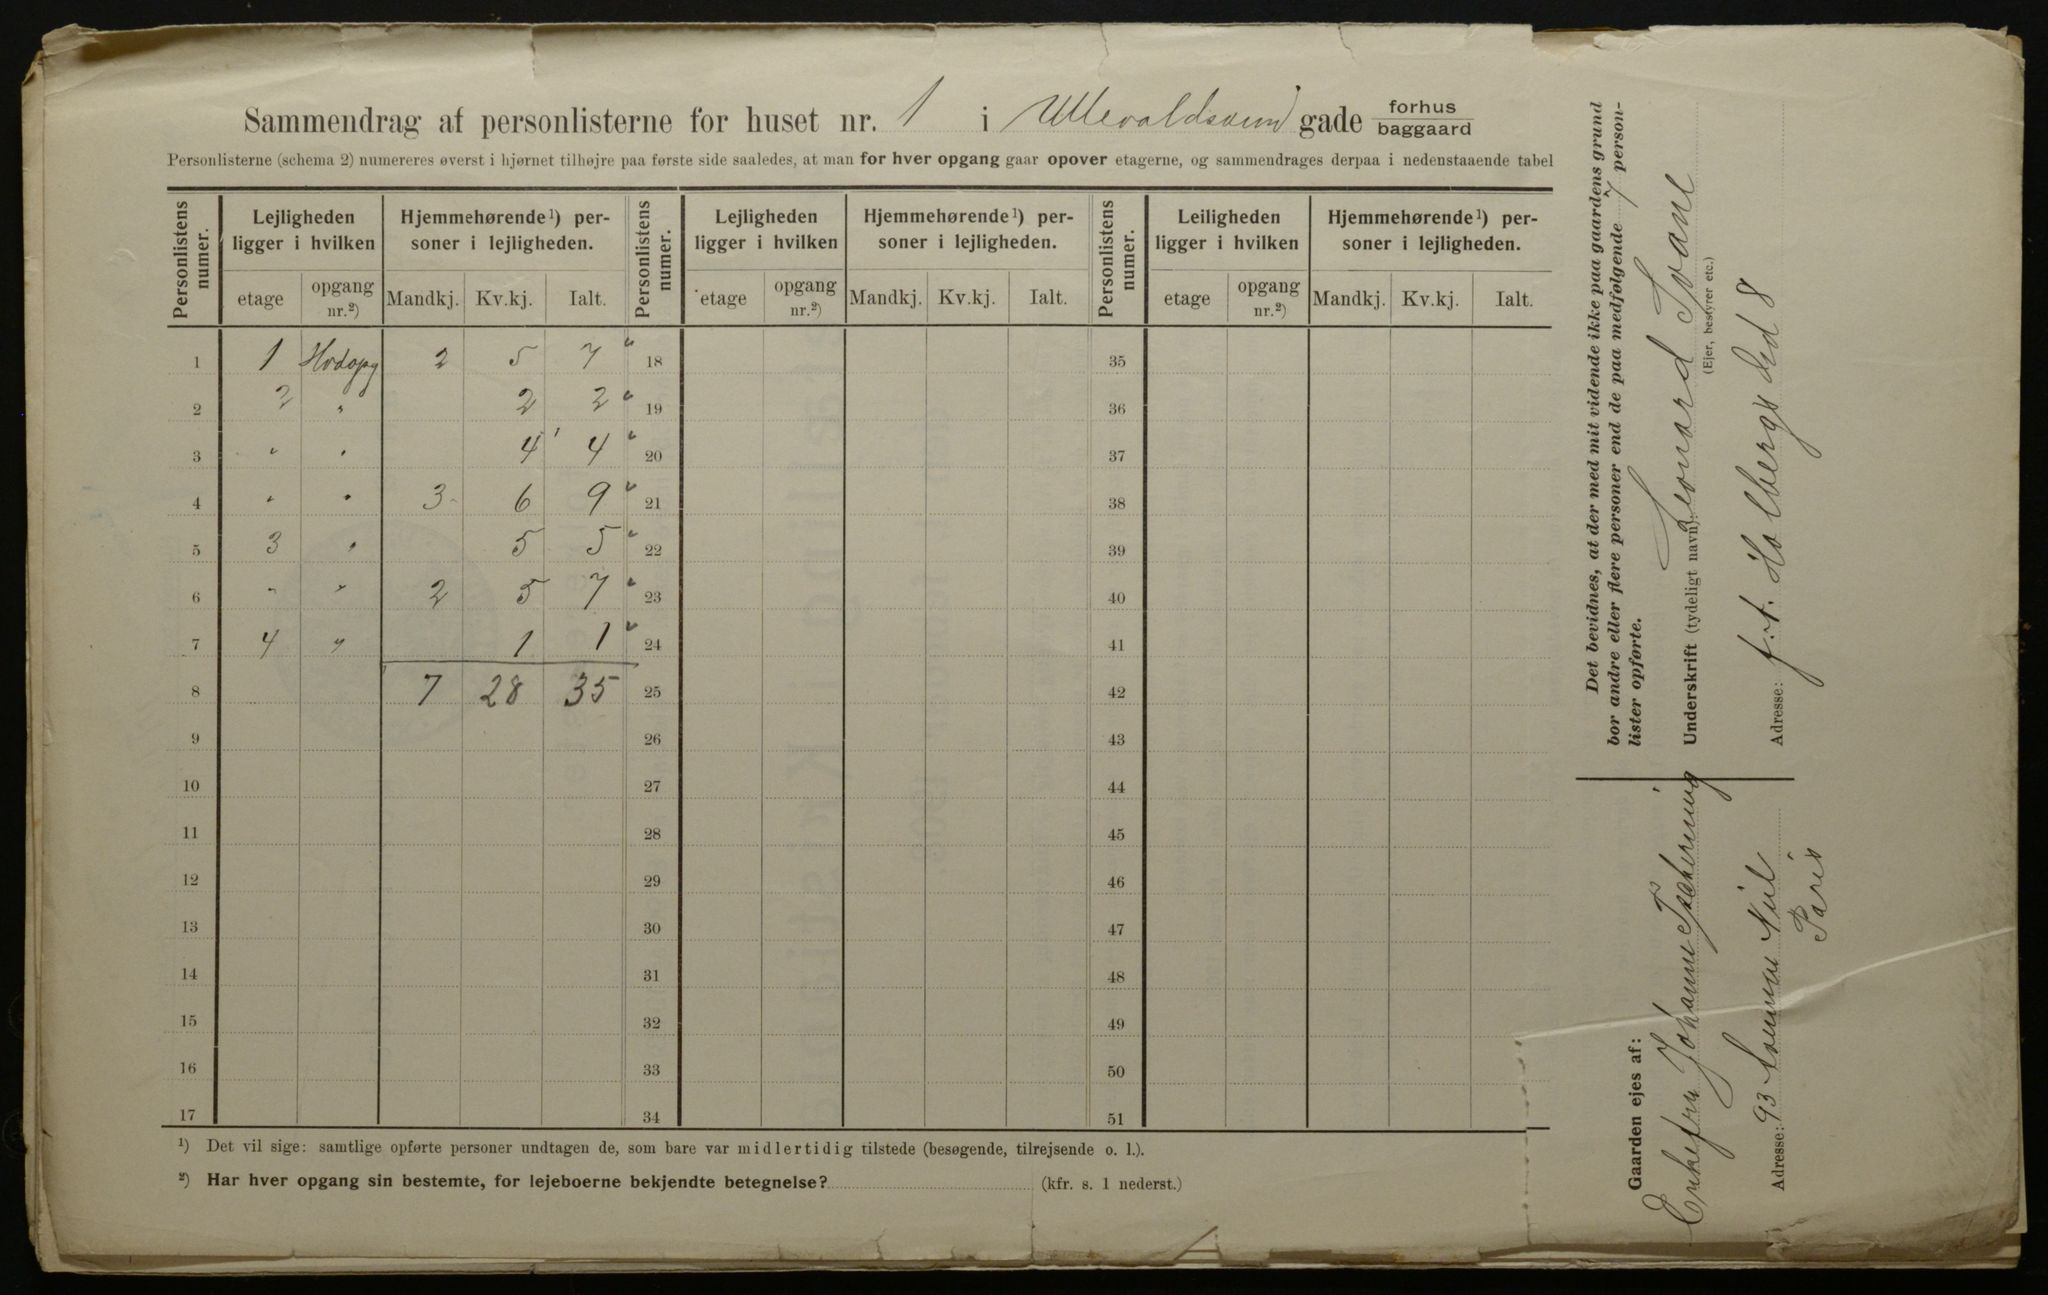 Sammendrag af personlisterne for huset nr. 1 i Ullevaldsveien gade forhus
baggaard
Personlisterne (schema 2) numereres øverst i hjørnet tilhøjre paa første side saaledes, at man for hver opgang gaar opover etagerne, og sammendrages derpaa i nedenstaaende tabel
Personlistens numer. Lejligheden ligger i hvilken Hjemmehørende¹) personer i lejligheden. Personlistens numer. Lejligheden ligger i hvilken Hjemmehørende¹) personer i lejligheden. Personlistens numer. Leiligheden ligger i hvilken Hjemmehørende¹) personer i lejligheden.
etage opgang nr.²) Mandkj. Kv.kj. Ialt. etage opgang nr.²) Mandkj. Kv.kj. Ialt. etage opgang nr.²) Mandkj. Kv.kj. Ialt.
1 1 Hvdopg 2 5 7 18 35
2 2 " 2 2 19 36
3 " " 4 4 20 37
4 " " 3 6 9 21 38
5 3 " 5 5 22 39
6 " " 2 5 7 23 40
7 4 " 1 1 24 41
8 7 28 35 25 42
9 26 43
10 27 44
11 28 45
12 29 46
13 30 47
14 31 48
15 32 49
16 33 50
17 34 51
¹) Det vil sige: samtlige opførte personer undtagen de, som bare var midlertidig tilstede (besøgende, tilrejsende o. l.).
²) Har hver opgang sin bestemte, for lejeboerne bekjendte betegnelse? (kfr. s. 1 nederst.)
Det bevidnes, at der med mit vidende ikke paa gaardens grund
bor andre eller flere personer end de paa medfølgende 7 person-
lister opførte.
Leonard Svane
Underskrift (tydeligt navn):
(Ejer, bestyrer etc.)
Adresse: f. t. Holbergs Gd 8
Gaarden ejes af:
Enkefru Johanne Tscherning
Adresse: 93 Niel
Paris